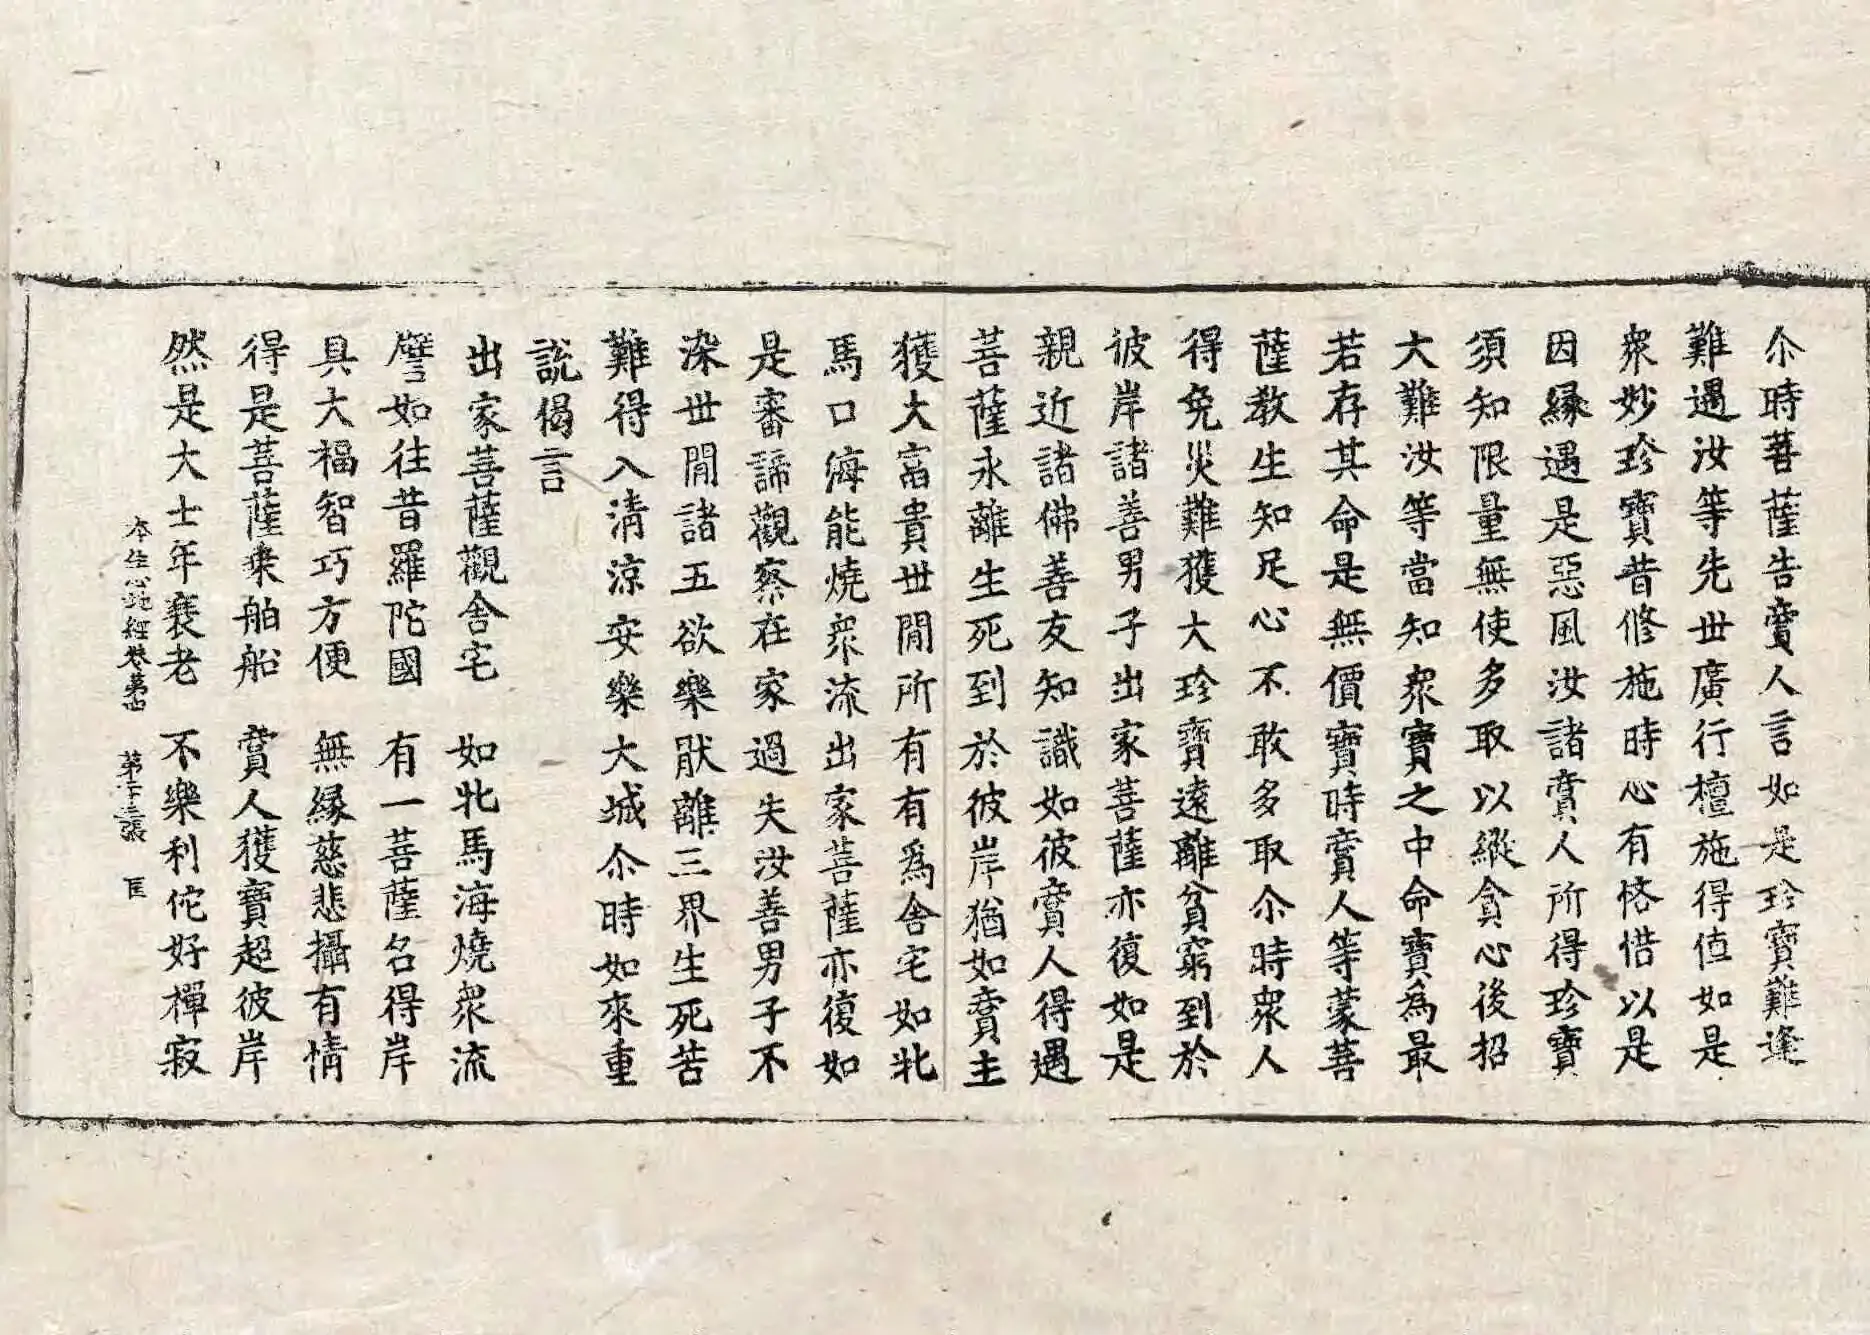 尒時菩薩告賣人言如是珍寶難逢
難遇汝等先丗廣行檀施得值如是
衆妙珍寶昔修施時心有悋惜以是
因縁遇是惡風汝諸賣人所得珍寶
須知限量無使多取以縱貪心後招
大難汝等當知衆寶之中命寶為最
若存其命是無價寶時賣人等蒙菩
薩教生知足心不敢多取尒時衆人
得免災難獲大珍寶遠離貧窮到於
彼岸諸善男子出家菩薩亦復如是
親近諸佛善友知識如彼賣人得遇
菩薩永離生死到於彼岸猶如賣主
獲大富貴丗閒所有有為舍宅如牝
馬口海能燒衆流出家菩薩亦復如
是審諦觀察在家過失汝善男子不
染丗閒諸五欲樂猒離三界生死苦
難得入清涼安樂大城尒時如來重
說偈言
出家菩薩觀舍宅　如牝馬海燒衆流
譬如往昔羅陀國　有一菩薩名得岸
具大福智巧方便　無縁慈悲攝有情
得是菩薩乗舶船　賣人獲寶超彼岸
然是大士年衰老　不樂利佗好禪寂
本生心地經卷第四　第 張　匡